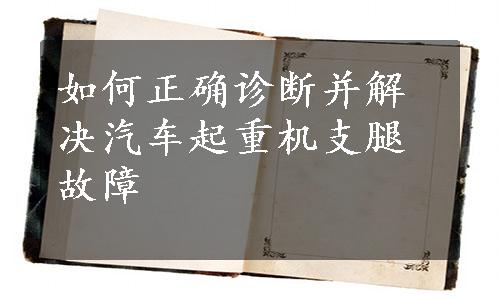 如何正确诊断并解
决汽车起重机支腿
故障